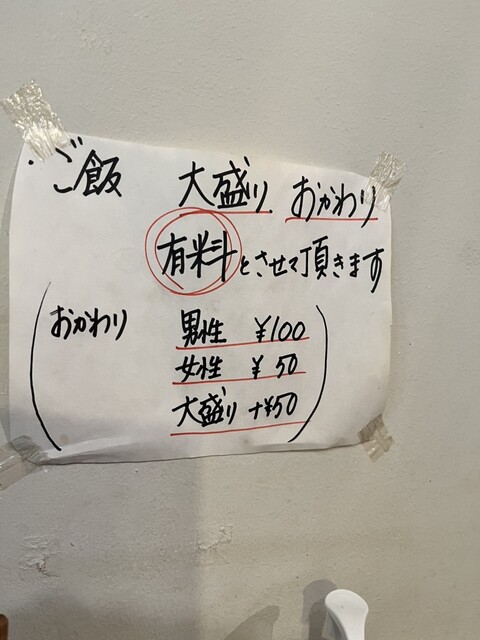 ・ご飯 大盛り おかわり
有料とさせて頂きます
(おかわり 男性 ¥100
女性 ¥50
大盛り +¥50)